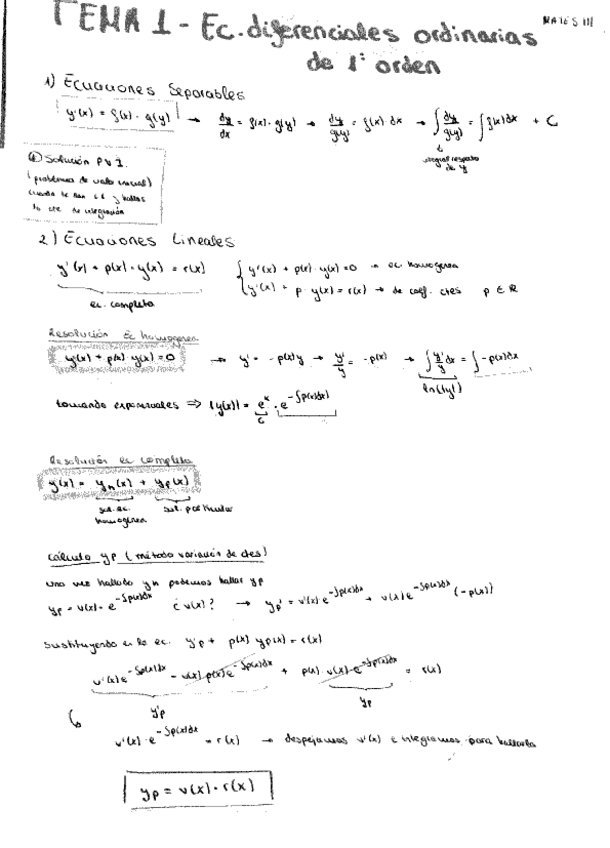 TEMA 1 - Ec. diferenciales ordinarias de 1º orden
MATES III
1) Ecuaciones Separables
y'(x) = g(x) · g(y) → dy/dx = g(x) · g(y) → dy/g(y) = g(x) · dx → ∫ dy/g(y) = ∫ g(x)dx + C
integral respecto de y
* Solución PVI.
(problema de valor inicial)
cuando te dan c.i. y hallas
la cte de integración
2) Ecuaciones Lineales
y'(x) + p(x) · y(x) = r(x)
ec. completa
y'(x) + p(x) · y(x) = 0 → ec. homogenea
y'(x) + p · y(x) = r(x) → de coeff. ctes p ∈ ℝ
Resolución Ec homogenea
y'(x) + p(x) · y(x) = 0 → y' = -p(x)y → y'/y = -p(x) → ∫ y'/y dx = ∫ -p(x)dx
ln(|y|)
tomando exponenciales ⇒ |y(x)| = e^k · e^-∫p(x)dx
C
Resolución ec completa
y(x) = yh(x) + yp(x)
sol. ec. homogenea
sol. particular
cálculo yp (método variación de ctes)
una vez hallado yh podemos hallar yp
yp = v(x) · e^-∫p(x)dx ¿v(x)? → yp' = v'(x) e^-∫p(x)dx + v(x) e^-∫p(x)dx (-p(x))
sustituyendo en la ec. y'p + p(x) yp(x) = r(x)
v'(x) e^-∫p(x)dx - v(x) p(x) e^-∫p(x)dx + p(x) · v(x) · e^-∫p(x)dx = r(x)
y'p
yp
v'(x) · e^-∫p(x)dx = r(x) → despejamos v'(x) e integramos para hallarla
yp = v(x) · r(x)